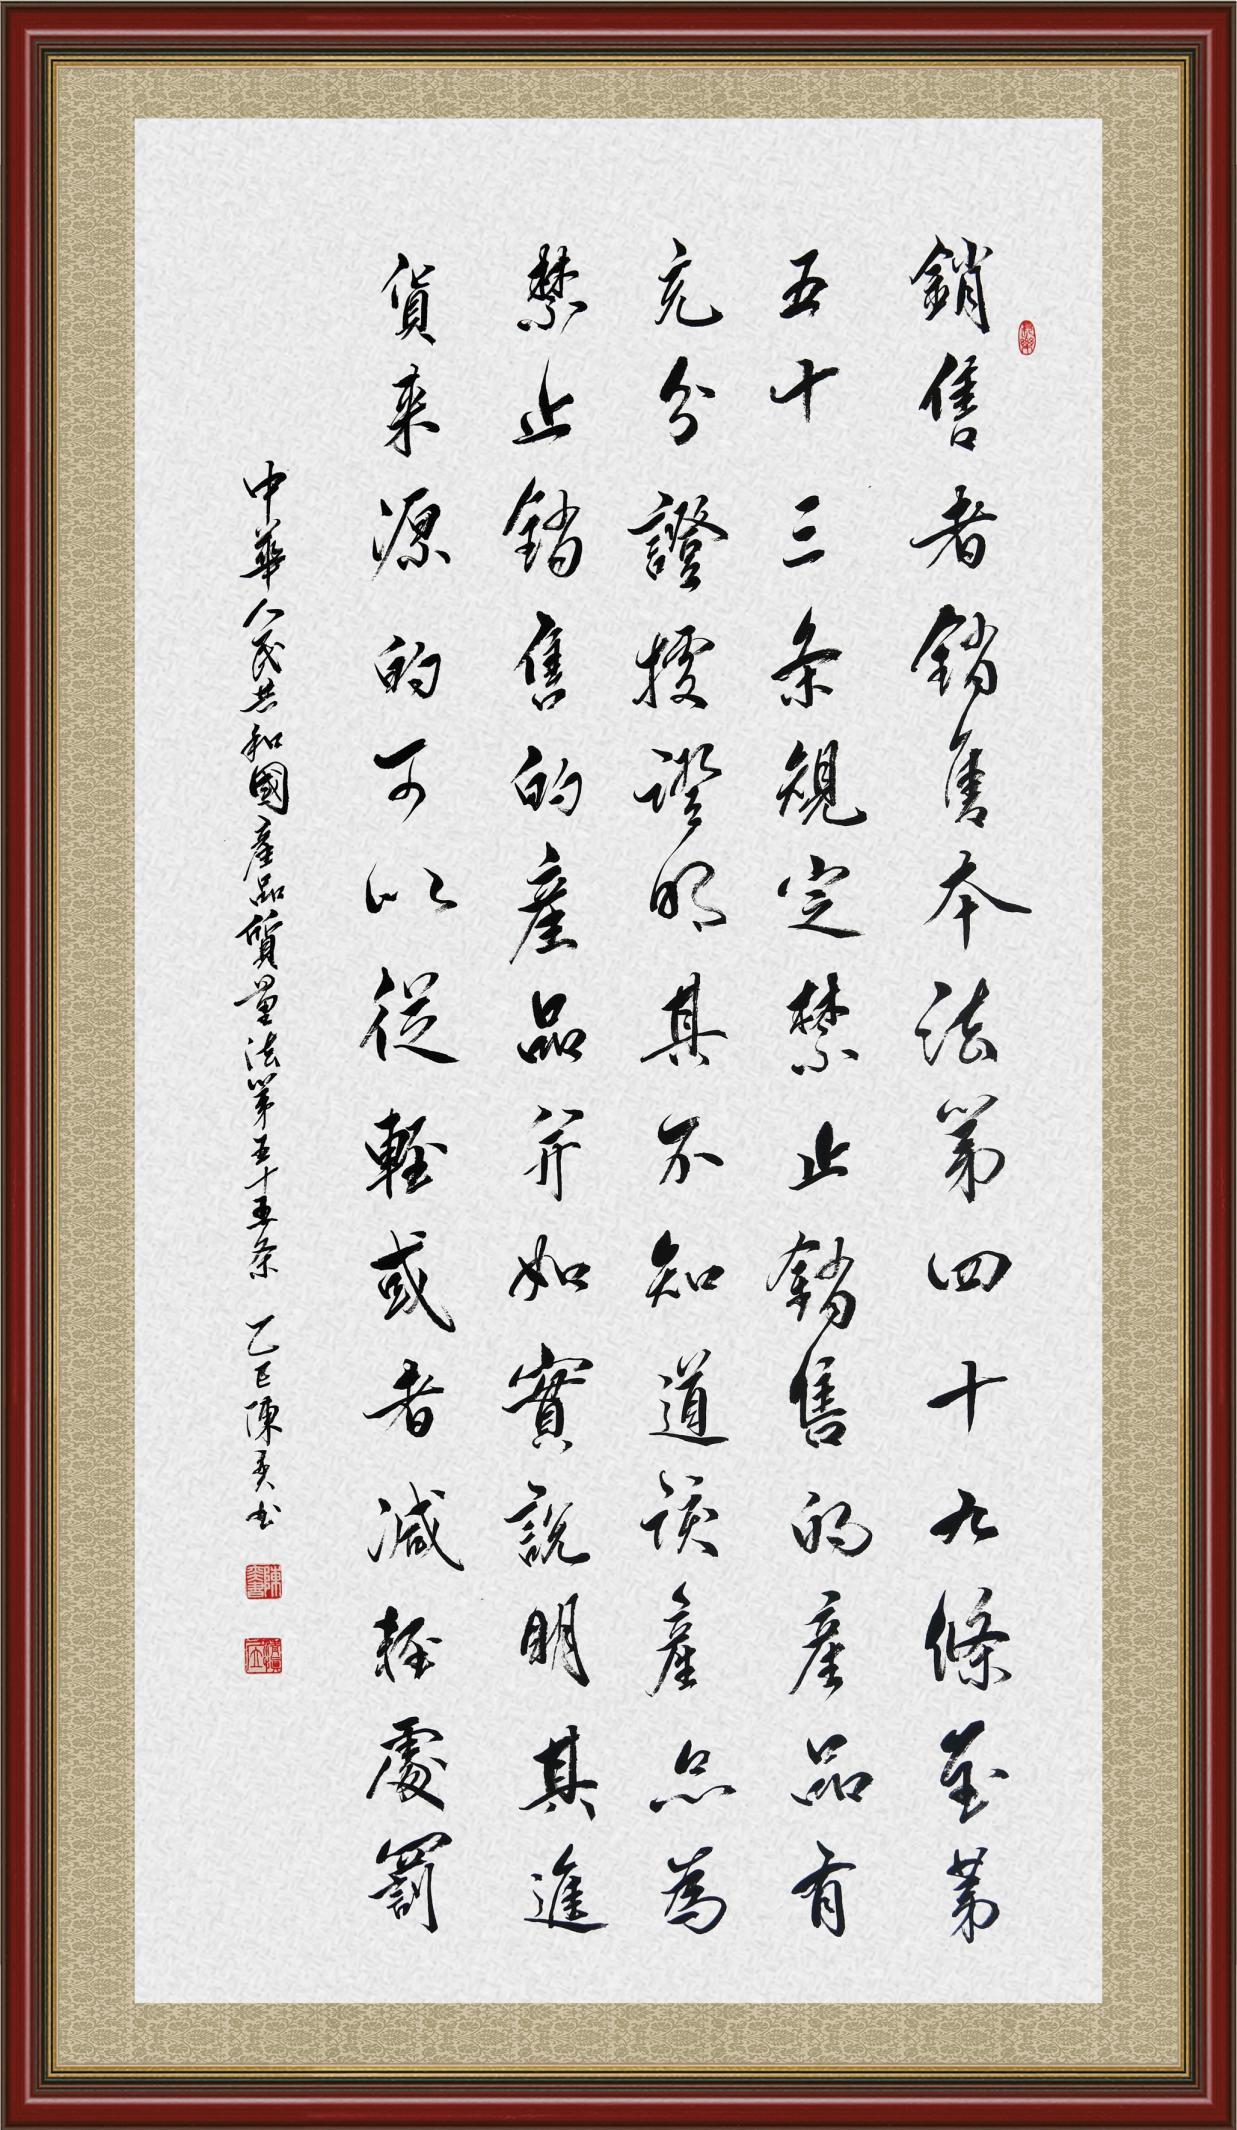 銷售者銷售本法第四十九條至第
五十三条規定禁止銷售的產品有
充分證據證明其不知道該產品為
禁止銷售的產品并如實說明其進
貨来源的可以從輕或者減輕處罰
中華人民共和國產品質量法第五十五条 乙巳陳奚书